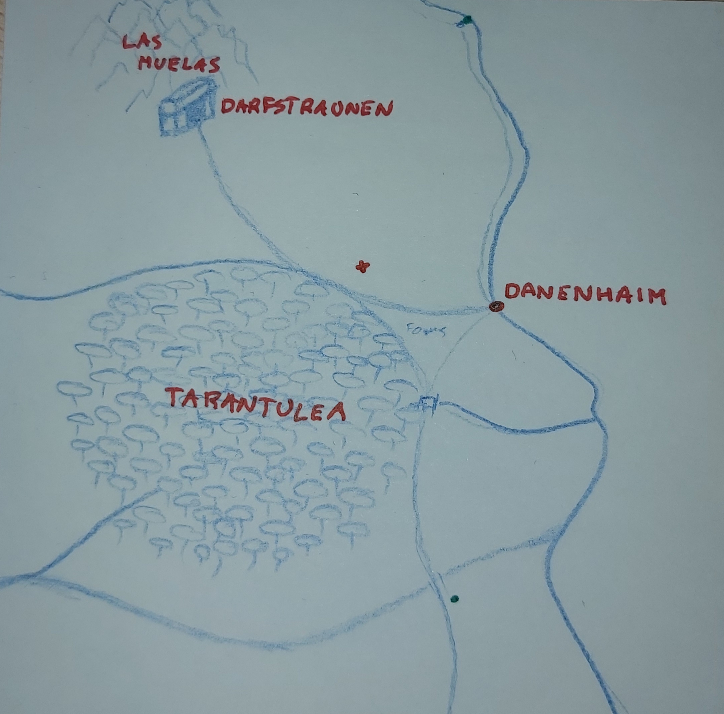 LAS
MUELAS
DARFSTRAUNEN
DANENHAIM
TARANTULEA